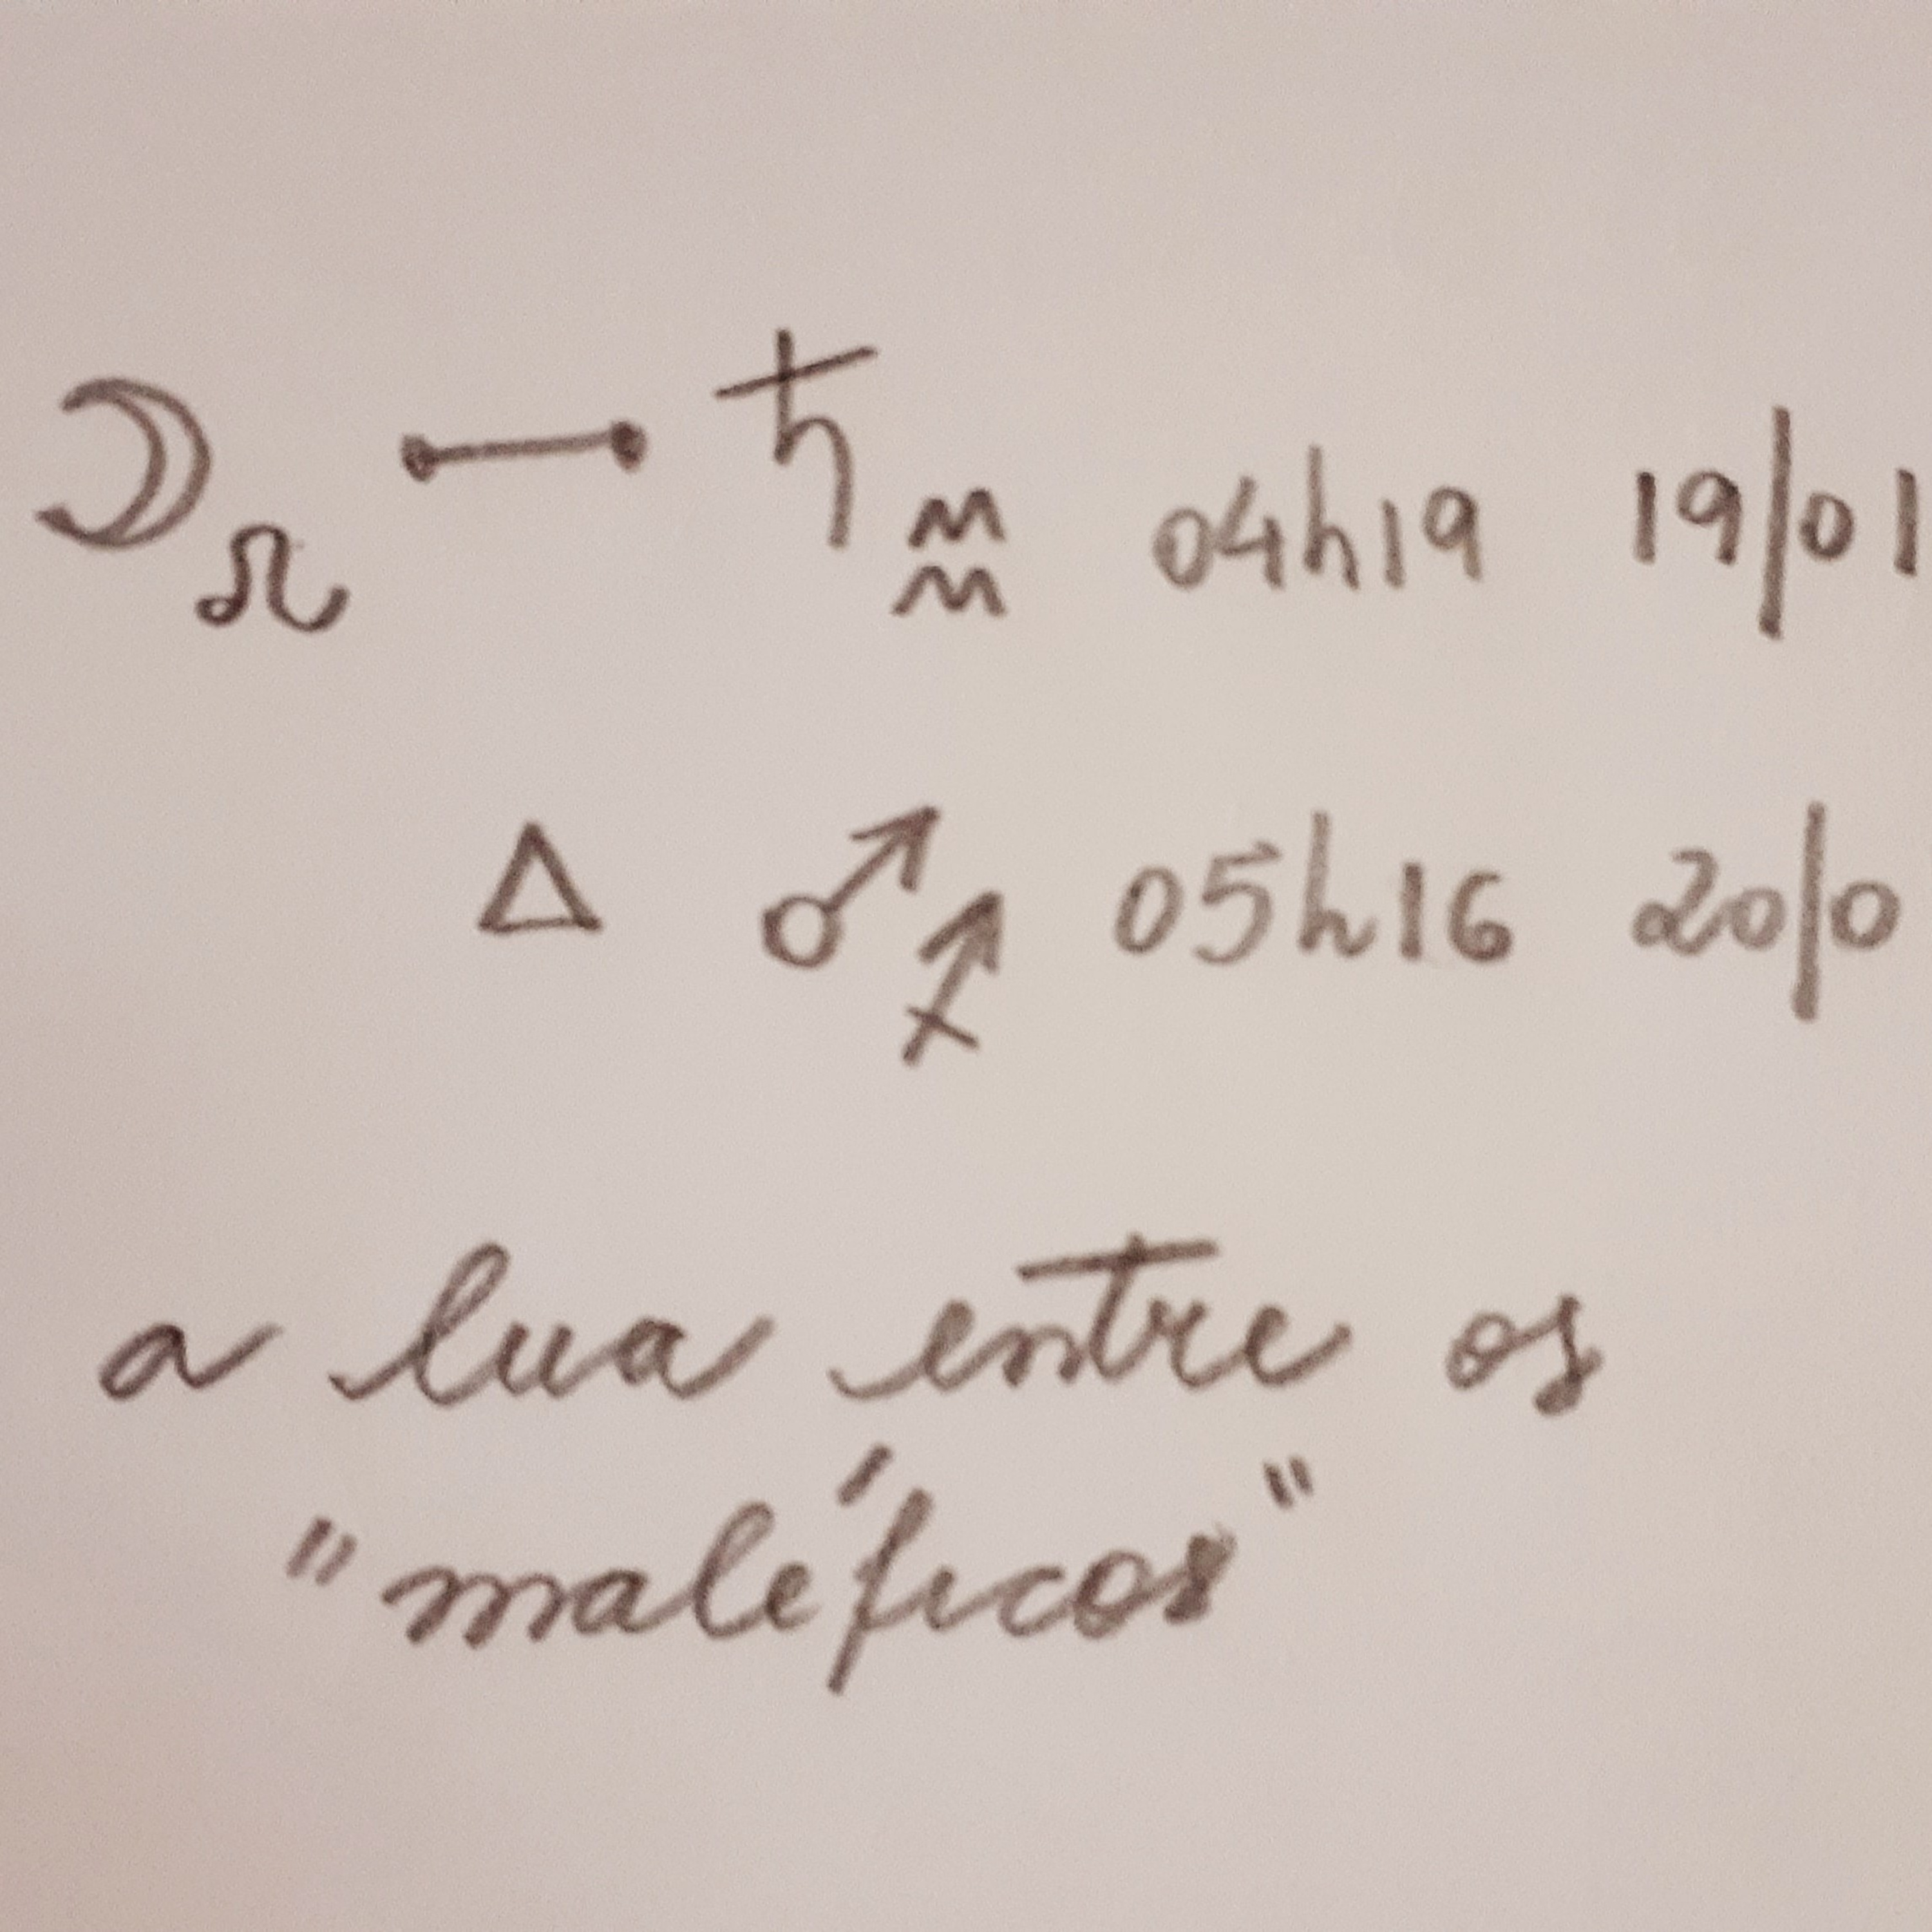 ☽♌ ☍ ♄♒ 04h19 19/01
△ ♂♐ 05h16 20/0
a lua entre os
"maléficos"